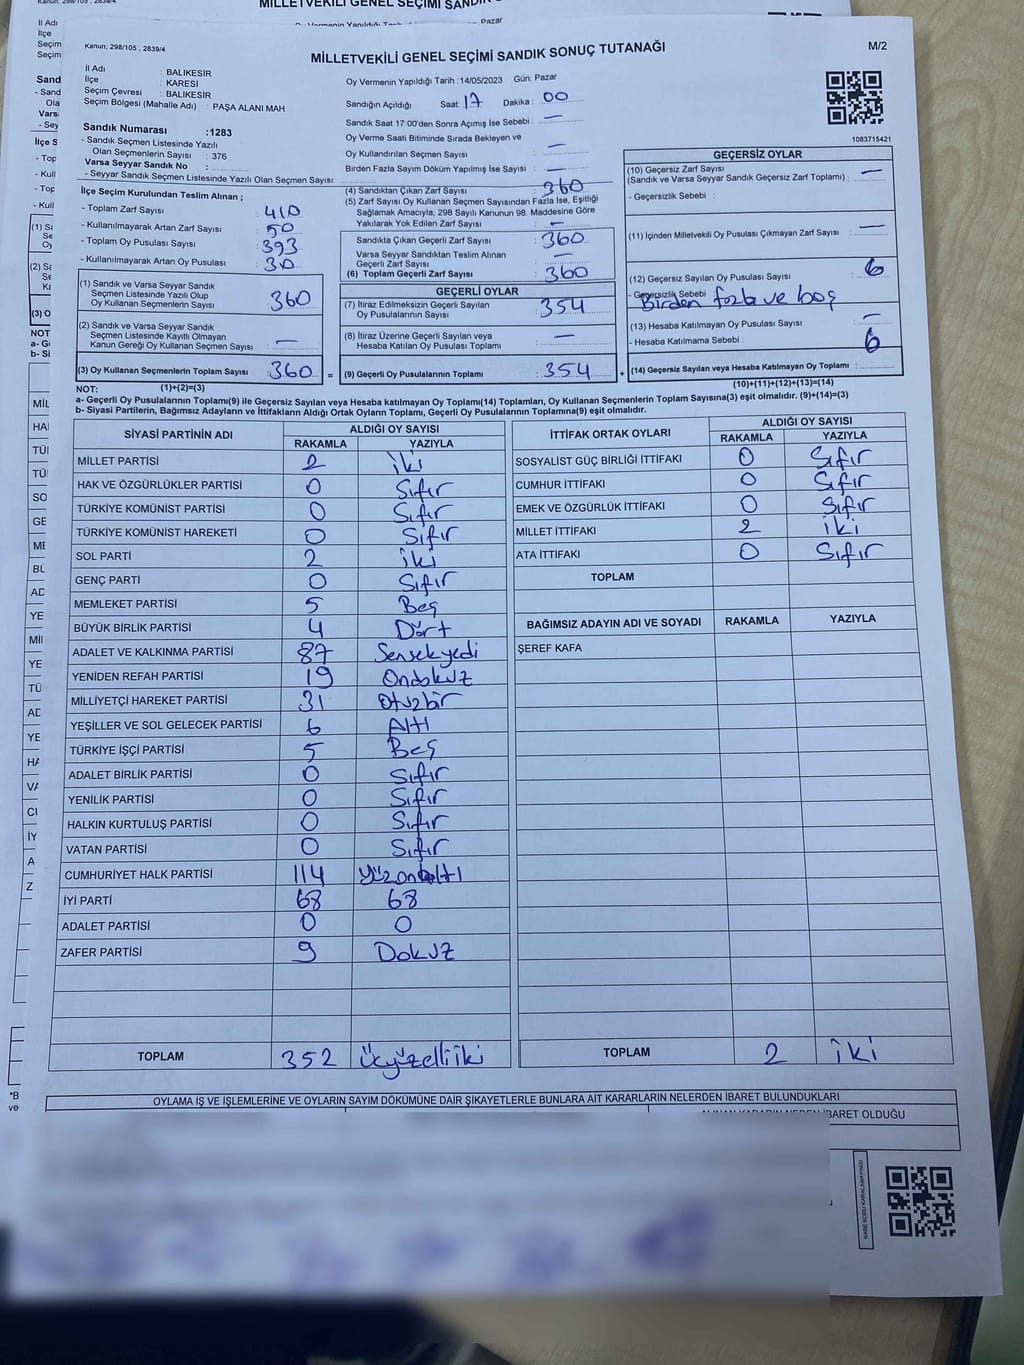 MİLLETVEKİLİ GENEL SEÇİMİ
Kanun; 298/105 , 2839/4
MİLLETVEKİLİ GENEL SEÇİMİ SANDIK SONUÇ TUTANAĞI
M/2
İl Adı : BALIKESİR
İlçe : KARESİ
Seçim Çevresi : BALIKESİR
Seçim Bölgesi (Mahalle Adı) : PAŞA ALANI MAH
Sandık Numarası :1283
- Sandık Seçmen Listesinde Yazılı
Olan Seçmenlerin Sayısı : 376
Varsa Seyyar Sandık No :
- Seyyar Sandık Seçmen Listesinde Yazılı Olan Seçmen Sayısı:
İlçe Seçim Kurulundan Teslim Alınan ;
- Toplam Zarf Sayısı : 410
- Kullanılmayarak Artan Zarf Sayısı : 50
- Toplam Oy Pusulası Sayısı : 393
- Kullanılmayarak Artan Oy Pusulası : 30
(1) Sandık ve Varsa Seyyar Sandık
Seçmen Listesinde Yazılı Olup
Oy Kullanan Seçmenlerin Sayısı : 360
(2) Sandık ve Varsa Seyyar Sandık
Seçmen Listesinde Kayıtlı Olmayan
Kanun Gereği Oy Kullanan Seçmen Sayısı : —
(3) Oy Kullanan Seçmenlerin Toplam Sayısı : 360 =
Oy Vermenin Yapıldığı Tarih :14/05/2023 Gün: Pazar
Sandığın Açıldığı Saat: 17 Dakika : 00
Sandık Saat 17:00'den Sonra Açımış İse Sebebi : —
Oy Verme Saati Bitiminde Sırada Bekleyen ve
Oy Kullandırılan Seçmen Sayısı : —
Birden Fazla Sayım Döküm Yapılmış İse Sayısı : —
(4) Sandıktan Çıkan Zarf Sayısı : 360
(5) Zarf Sayısı Oy Kullanan Seçmen Sayısından Fazla İse, Eşitliği
Sağlamak Amacıyla, 298 Sayılı Kanunun 98. Maddesine Göre
Yakılarak Yok Edilen Zarf Sayısı : —
Sandıkta Çıkan Geçerli Zarf Sayısı : 360
Varsa Seyyar Sandıktan Teslim Alınan
Geçerli Zarf Sayısı : —
(6) Toplam Geçerli Zarf Sayısı : 360
GEÇERLİ OYLAR
(7) İtiraz Edilmeksizin Geçerli Sayılan
Oy Pusulalarının Sayısı : 354
(8) İtiraz Üzerine Geçerli Sayılan veya
Hesaba Katılan Oy Pusulası Toplamı : —
(9) Geçerli Oy Pusulalarının Toplamı : 354 +
1083715421
GEÇERSİZ OYLAR
(10) Geçersiz Zarf Sayısı
(Sandık ve Varsa Seyyar Sandık Geçersiz Zarf Toplamı) : —
- Geçersizlik Sebebi :
(11) İçinden Milletvekili Oy Pusulası Çıkmayan Zarf Sayısı : —
(12) Geçersiz Sayılan Oy Pusulası Sayısı : 6
- Geçersizlik Sebebi : Birden fazla ve boş
(13) Hesaba Katılmayan Oy Pusulası Sayısı : —
- Hesaba Katılmama Sebebi : 6
(14) Geçersiz Sayılan veya Hesaba Katılmayan Oy Toplamı :
NOT: (1)+(2)=(3)
(10)+(11)+(12)+(13)=(14)
a- Geçerli Oy Pusulalarının Toplamı(9) ile Geçersiz Sayılan veya Hesaba Katılmayan Oy Toplamı(14) Toplamları, Oy Kullanan Seçmenlerin Toplam Sayısına(3) eşit olmalıdır. (9)+(14)=(3)
b- Siyasi Partilerin, Bağımsız Adayların ve İttifakların Aldığı Ortak Oyların Toplamı, Geçerli Oy Pusulalarının Toplamına(9) eşit olmalıdır.
SİYASİ PARTİNİN ADI ALDIĞI OY SAYISI
RAKAMLA YAZIYLA
MİLLET PARTİSİ 2 iki
HAK VE ÖZGÜRLÜKLER PARTİSİ 0 Sıfır
TÜRKİYE KOMÜNİST PARTİSİ 0 Sıfır
TÜRKİYE KOMÜNİST HAREKETİ 0 Sıfır
SOL PARTİ 2 iki
GENÇ PARTİ 0 Sıfır
MEMLEKET PARTİSİ 5 Beş
BÜYÜK BİRLİK PARTİSİ 4 Dört
ADALET VE KALKINMA PARTİSİ 87 Sensekyedi
YENİDEN REFAH PARTİSİ 19 Ondokuz
MİLLİYETÇİ HAREKET PARTİSİ 31 otuzbir
YEŞİLLER VE SOL GELECEK PARTİSİ 6 Altı
TÜRKİYE İŞÇİ PARTİSİ 5 Beş
ADALET BİRLİK PARTİSİ 0 Sıfır
YENİLİK PARTİSİ 0 Sıfır
HALKIN KURTULUŞ PARTİSİ 0 Sıfır
VATAN PARTİSİ 0 Sıfır
CUMHURİYET HALK PARTİSİ 114
İYİ PARTİ 68 68
ADALET PARTİSİ 0 0
ZAFER PARTİSİ 9 Dokuz
TOPLAM 352 üçyüzelliiki
İTTİFAK ORTAK OYLARI ALDIĞI OY SAYISI
RAKAMLA YAZIYLA
SOSYALİST GÜÇ BİRLİĞİ İTTİFAKI 0 Sıfır
CUMHUR İTTİFAKI 0 Sıfır
EMEK VE ÖZGÜRLÜK İTTİFAKI 0 Sıfır
MİLLET İTTİFAKI 2 iki
ATA İTTİFAKI 0 Sıfır
TOPLAM
BAĞIMSIZ ADAYIN ADI VE SOYADI RAKAMLA YAZIYLA
ŞEREF KAFA
TOPLAM 2 iki
OYLAMA İŞ VE İŞLEMLERİNE VE OYLARIN SAYIM DÖKÜMÜNE DAİR ŞİKAYETLERLE BUNLARA AİT KARARLARIN NELERDEN İBARET BULUNDUKLARI
ALINAN KARARIN NEDEN İBARET OLDUĞU
KARE KODU KARALAMAYINIZ!